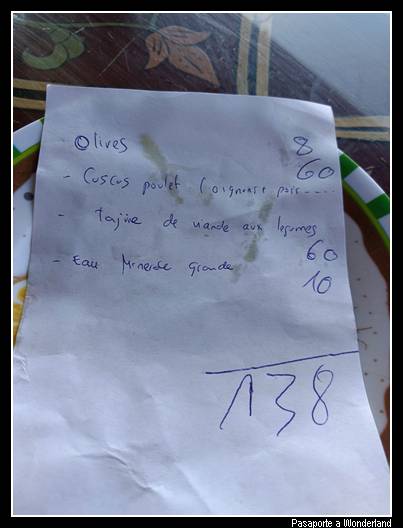 Olives 8
- Cuscus poulet (oignons+ pois.... 60
- Tajine de viande aux legumes 60
- Eau Minerale grande 10
138
Pasaporte a Wonderland